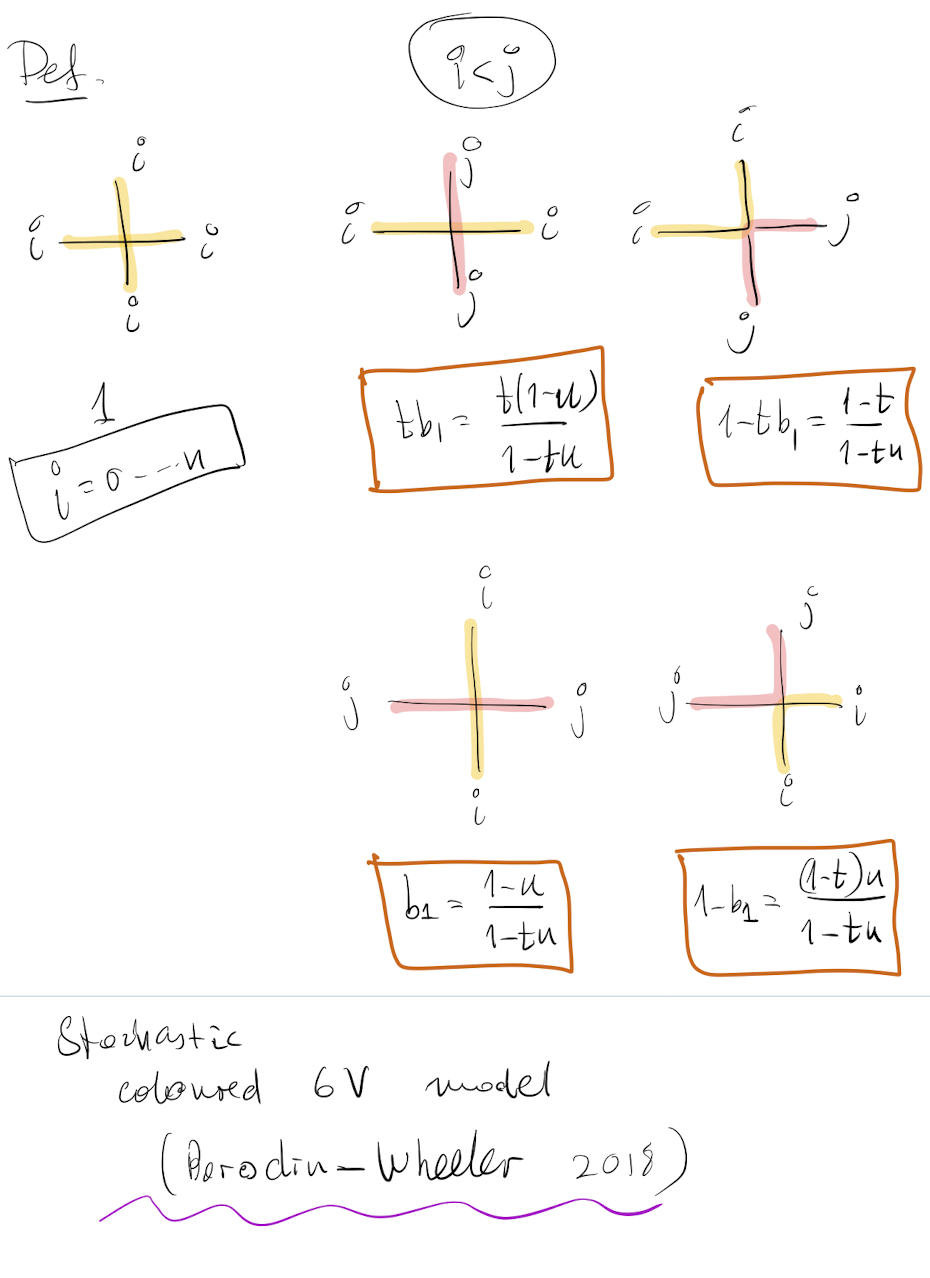 Def.
i<j
i
i
i
i
1
i = 0 --- n
j
i
i
j
tb₁ = t(1-u)/(1-tu)
i
i
j
j
1-tb₁ = (1-t)/(1-tu)
i
j
j
i
b₁ = (1-u)/(1-tu)
j
j
i
i
1-b₁ = (1-t)u/(1-tu)
Stochastic
coloured 6V model
(Borodin-Wheeler 2018)